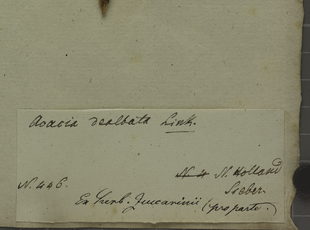 Acacia dealbata Link.
N. 4 N. Holland
N. 446. Sieber.
Ex Herb. Zuccarinii (pro parte.)